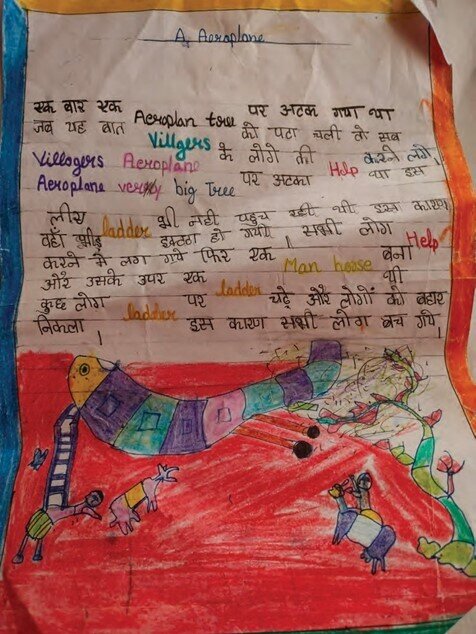 A, Aeroplane
एक बार एक Aeroplan tree पर अटक गया था
जब यह बात Villgers को पता चली तो सब
Villagers Aeroplane के लोगो की Help करने लगे।
Aeroplane very big tree पर अटका था इस
लीए ladder भी नही पहुंच रही थी इस कारण
वहाँ भीड़ इक्टठा हो गयी। सभी लोग Help
करने मे लग गये फिर एक Man hoose बना
और उसके उपर एक ladder थी
कुछ लोग ladder पर चढ़े और लोगों को बहार
निकला। इस कारण सभी लोग बच गये।